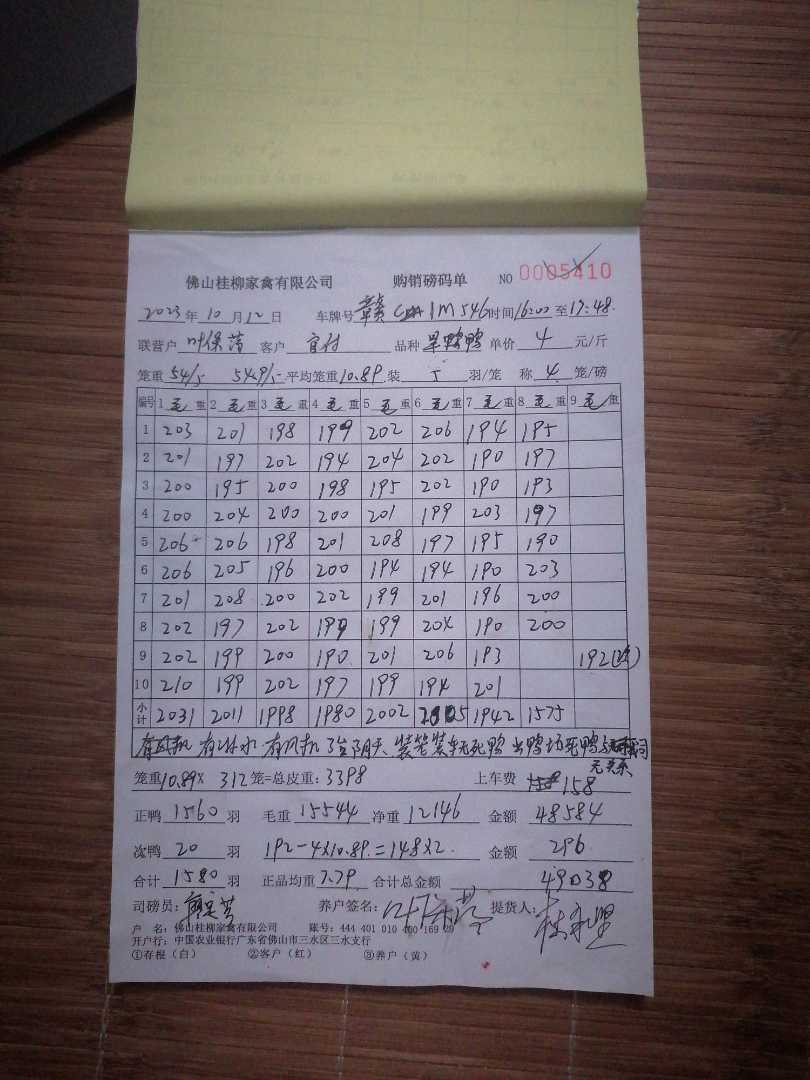 佛山桂柳家禽有限公司 购销磅码单 NO 0005410
2023年10月12日 车牌号 赣C 1M546 时间16:00至17:48.
联营户 叶保 客户 官村 品种 鸭 单价 4 元/斤
笼重 54/5 54.9/5 平均笼重10.89 装 5 羽/笼 称 4 笼/磅
编号 1毛重 2毛重 3毛重 4毛重 5毛重 6毛重 7毛重 8毛重 9毛重
1 203 201 198 199 202 206 194 195
2 201 197 202 194 204 202 190 197
3 200 195 200 198 195 202 190 193
4 200 204 200 200 201 199 203 197
5 206 206 198 201 208 197 195 190
6 206 205 196 200 194 194 190 203
7 201 208 200 202 199 201 196 200
8 202 197 202 199 199 204 190 200
9 202 199 200 190 201 206 193 192
10 210 199 202 197 199 194 201
小计 2031 2011 1998 1980 2002 2005 1942 1575
有风机 有冰水 有风机 阴天 装笼装车死鸭 出鸭 死鸭与 公司
无关系
笼重10.89X 312笼=总皮重:3398 上车费 158
正鸭 1560 羽 毛重 15544 净重 12146 金额 48584
次鸭 20 羽 192-4X10.89=148X2 金额 296
合计 1580 羽 正品均重 7.79 合计总金额 49038
司磅员: 养户签名: 提货人:
户 名:佛山桂柳家禽有限公司 账号:444 401 010 400 169 20
开户行:中国农业银行广东省佛山市三水区三水支行
①存根(白) ②客户(红) ③养户(黄)